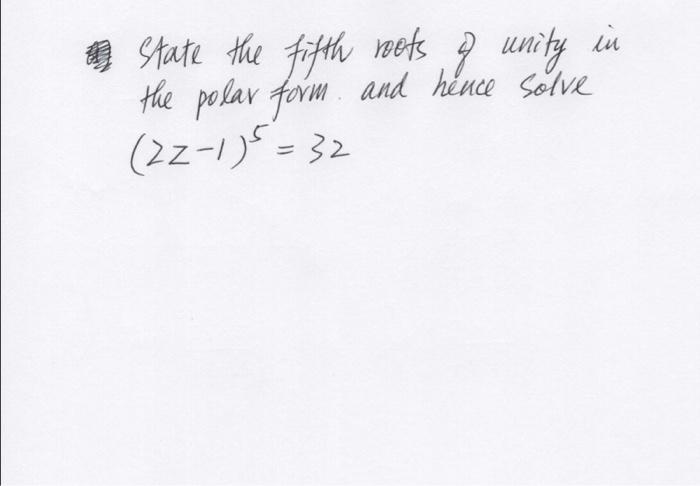 State the fifth roots of unity in
the polar form. and hence solve
(2z-1)⁵ = 32